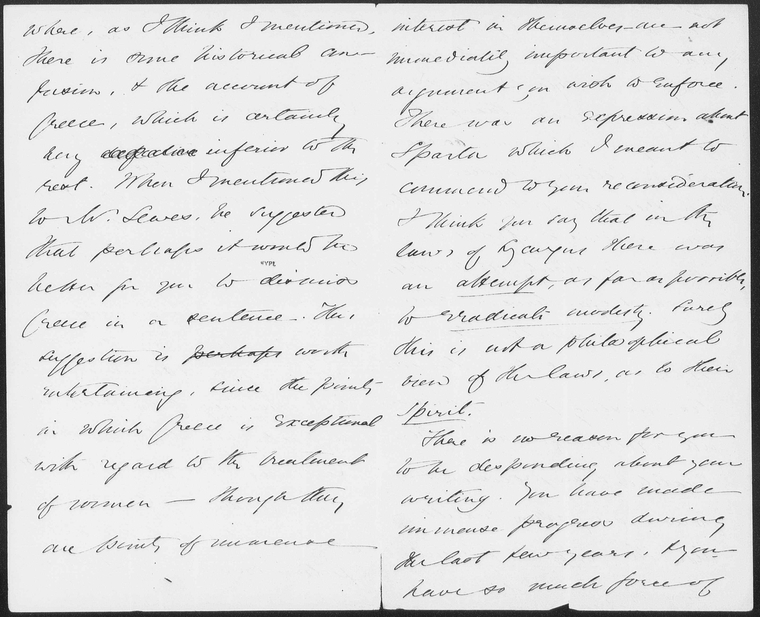 where, as I think I mentioned,
there is some historical con-
fusion, & the account of
Greece, which is certainly
very inferior to the
rest. When I mentioned this
to Mr. Lewes, he suggested
that perhaps it would be
better for you to dismiss
Greece in a sentence. This
suggestion is perhaps worth
entertaining, since the points
in which Greece is exceptional
with regard to the treatment
of women — though they
are points of immense
interest in themselves — are not
immediately important to any
argument you wish to enforce.
There was an expression about
Sparta which I meant to
commend to your reconsideration.
I think you say that in the
laws of Lycurgus there was
an attempt, as far as possible,
to eradicate modesty. Surely
this is not a philosophical
view of the laws, as to their
spirit.
There is no reason for you
to be desponding about your
writing. You have made
immense progress during
the last few years, & you
have so much force of